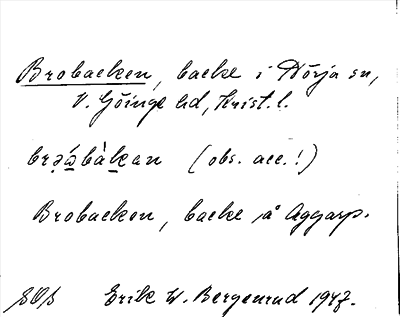 Brobacken, backe i Nörja sn,
V. Göinge hd, Krist. l.
(obs. acc.!)
Brobacken, backe å Aggarp.
Erik W. Bergenrud 1947.